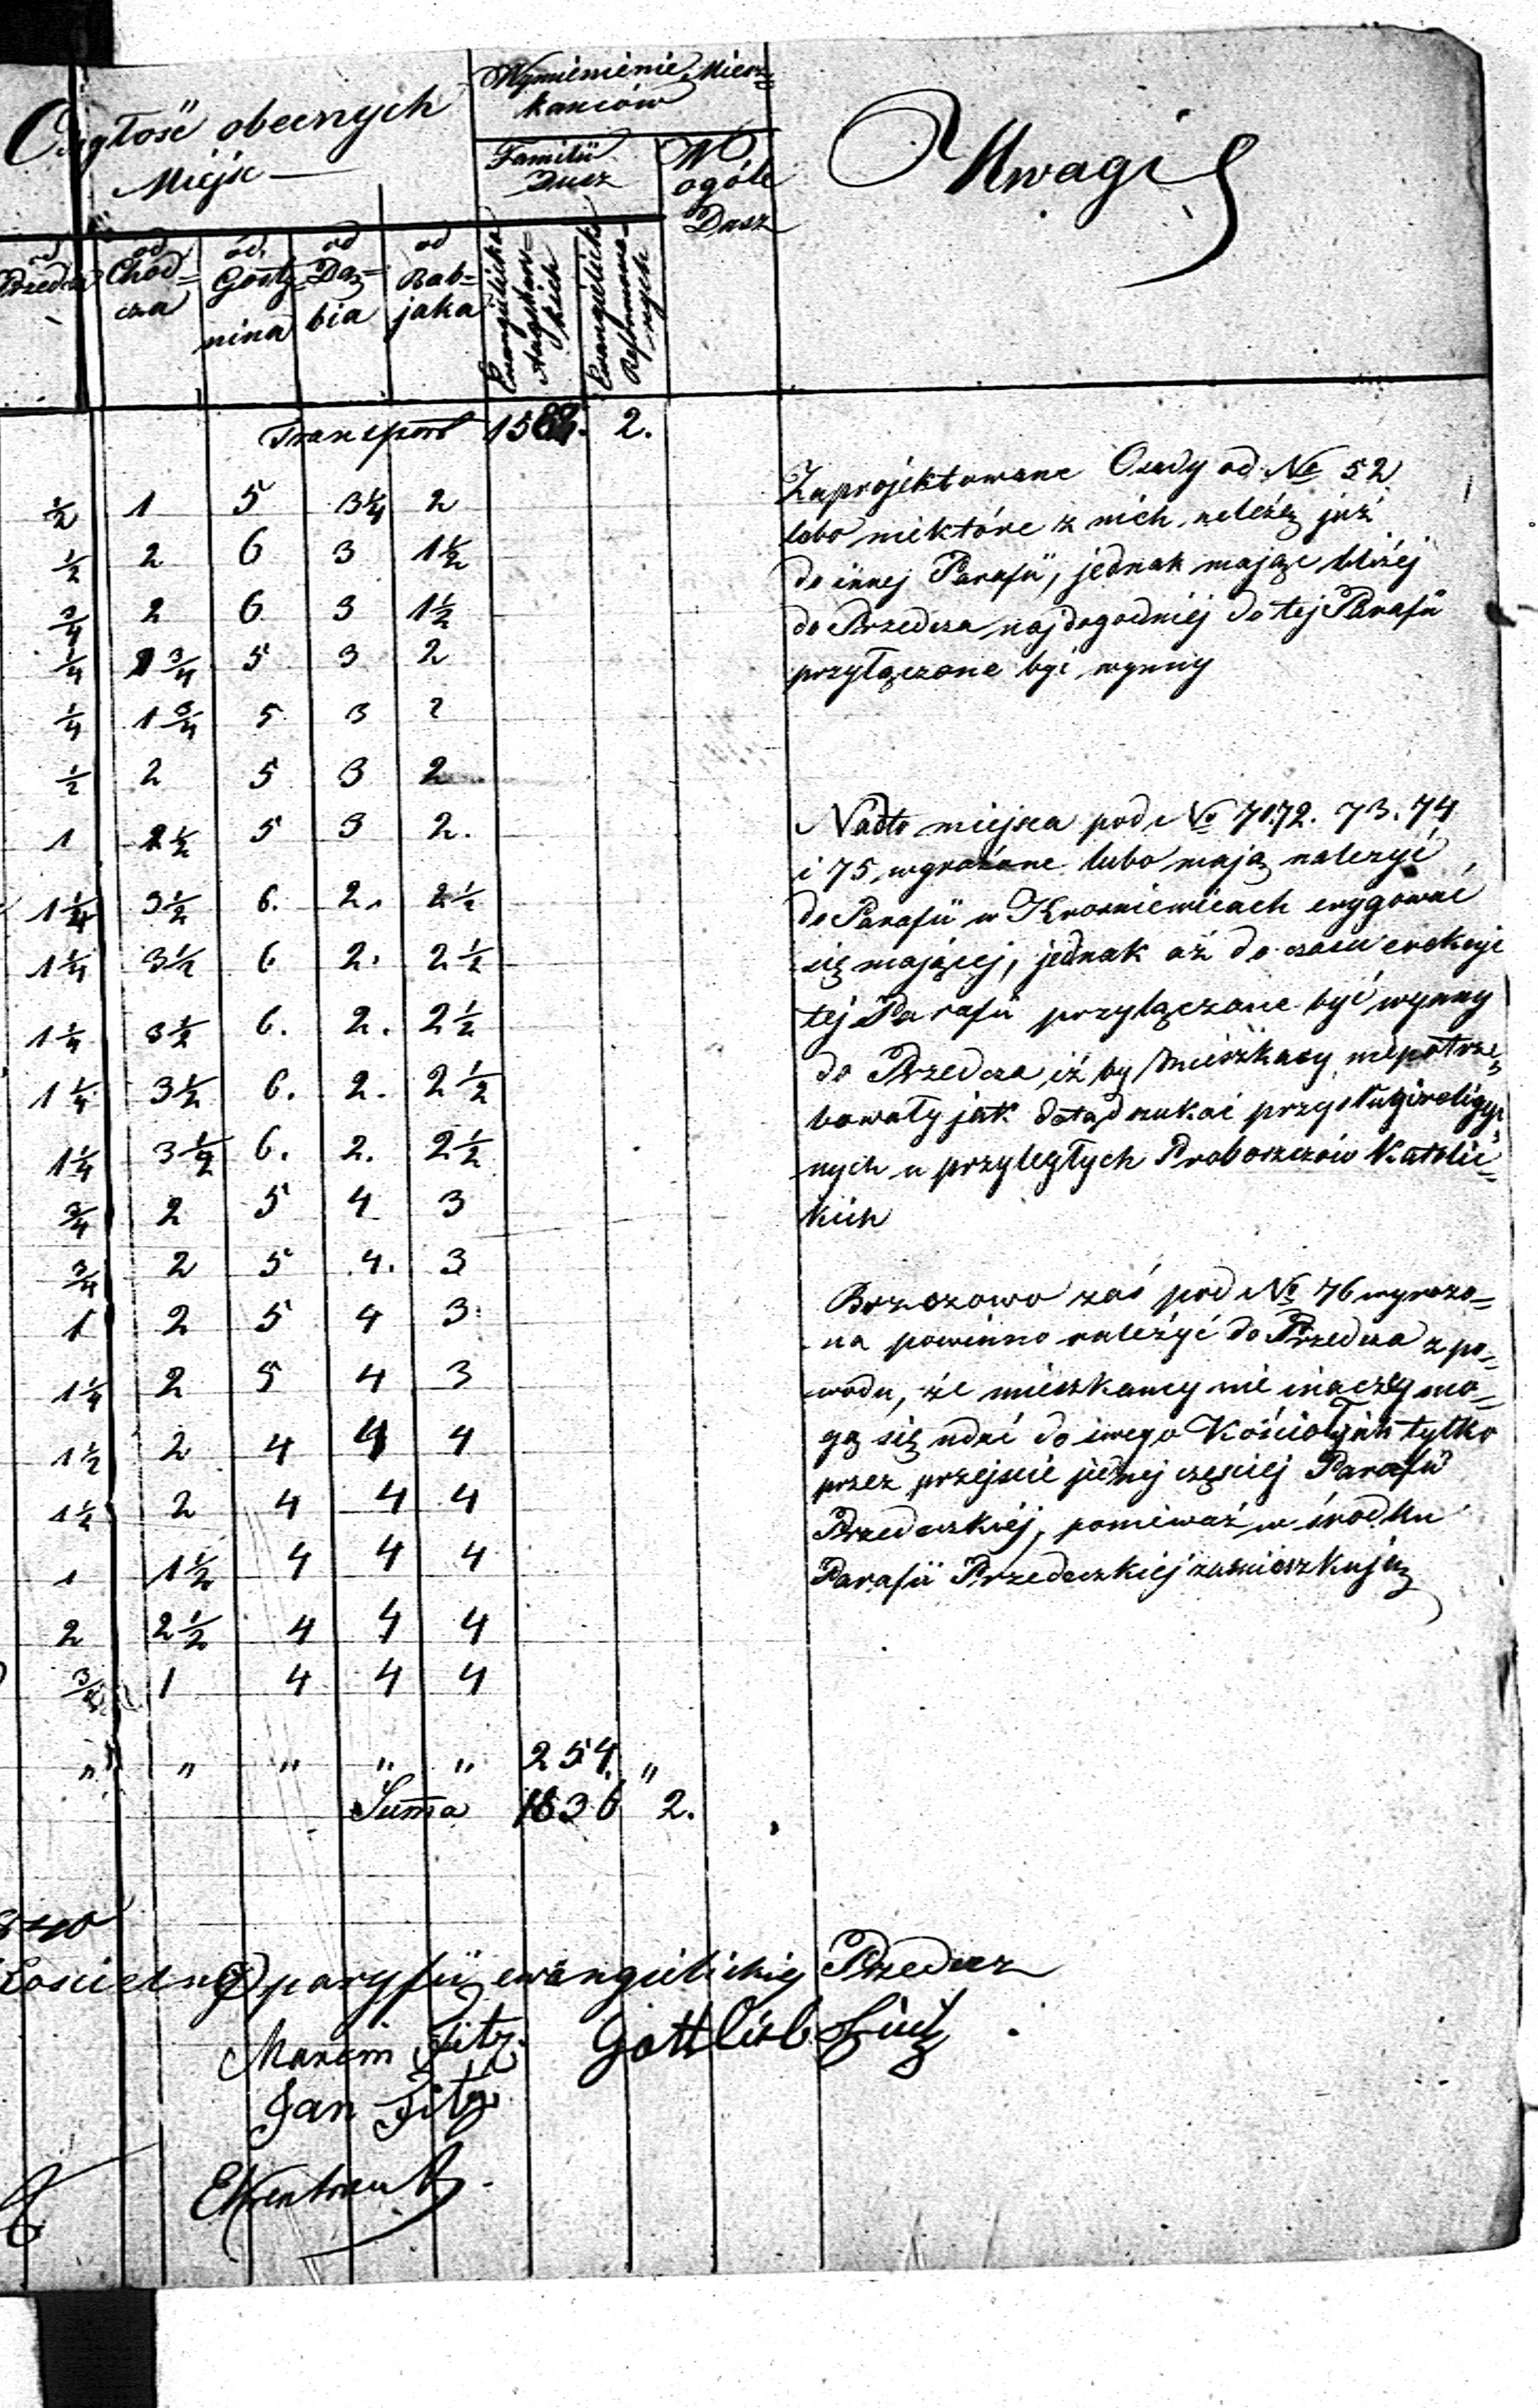 Odległość obecnych
Miejsc
Wymienienie Miesz=
kańców
Familii
Dusz
W
ogóle
Dusz
Uwagi
od Przedcza
od Chod=
cza
od Gosty=
nina
od Dą=
bia
od Bab=
jaka
Ewangielicko
Augsburs=
kich
Ewangielicko
Reformowa=
nych
Transport 1582. 2.
½ 1 5 3¼ 2
½ 2 6 3 1½
¾ 2 6 3 1½
¼ 1¾ 5 3 2
¼ 1¾ 5 3 2
½ 2 5 3 2
1 2½ 5 3 2.
1¼ 3½ 6. 2. 2½
1¼ 3½ 6 2. 2½
1¼ 3½ 6. 2. 2½
1¼ 3½ 6. 2. 2½
1¼ 3½ 6. 2. 2½
¾ 2 5 4 3
¾ 2 5 4. 3
1 2 5 4 3
1¼ 2 5 4 3
1½ 2 4 4 4
1½ 2 4 4 4
1 1½ 4 4 4
2 2½ 4 4 4
¾ 1 4 4 4
" " " " " 254. "
Suma 1836 2.
Zaprojektowane Osady od № 52
lubo niektóre z nich należą już
do innej Parafii, jednak mając bliżej
do Przedcza najdogodniej do tej Parafii
przyłączone być wynny
Nadto miejsca pod № 71.72. 73. 74
i 75 wyrażone lubo mają należyć
do Parafii w Krosniewicach erygować
się mającej, jednak aż do czasu erekcyi
tej Parafii przyłączone być wynny
do Przedcza iż by Mieszkancy niepotrze=
bowały jak dotąd szukać przysługi religyi
nych u przyległych Proboszczów Katolic=
kich
Brzozowo zaś pod № 76 wyrazo=
na powinno należyć do Przedcza z po=
wodu, że mieszkancy nie inaczey mo=
gą się udać do swego Kościoła jak tylko
przez przejscie jednej częsciej Parafii
Przedeczkiéj, poniewaź w środku
Parafii Przedeczkiej zamieszkują
840
Kościelny parafii ewangielickiej Przedecz
Marcin Fitz. Gottlieb
Jan Fitz
Ehrentraut